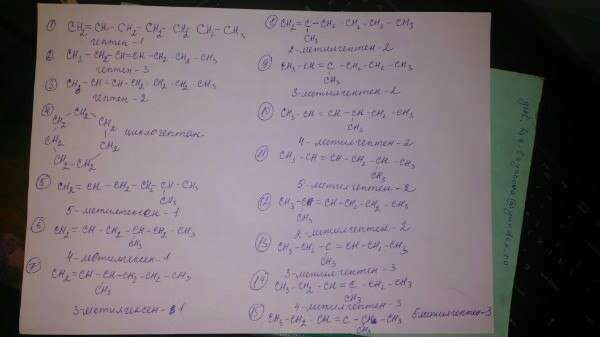 ① CH₂=CH-CH₂-CH₂-CH₂-CH₂-CH₃
гептен-1
2. CH₃-CH₂-CH=CH-CH₂-CH₂-CH₃
гептен-3
③ CH₃-CH=CH-CH₂-CH₂-CH₂-CH₃
гептен-2
④ CH₂-CH₂
CH₂
CH₂ CH₂ циклогептан
CH₂-CH₂
⑤ CH₂=CH-CH₂-CH₂-CH-CH₃
CH₃
5-метилгексен-1
⑥ CH₂=CH-CH₂-CH-CH₂-CH₃
CH₃
4-метилгексен-1
⑦ CH₂=CH-CH-CH₂-CH₂-CH₃
CH₃
3-метилгексен-1
⑧ CH₂=C-CH₂-CH₂-CH₂-CH₃
CH₃
2-метилгептен-2
⑨ CH₃-CH=C-CH₂-CH₂-CH₃
CH₃
3-метилгептен-2
⑩ CH₃-CH=CH-CH-CH₂-CH₃
CH₃
4-метилгептен-2
⑪ CH₃-CH=CH-CH₂-CH-CH₃
CH₃
5-метилгептен-2
⑫
CH₃
2-метилгептен-2
⑬ CH₃-CH₂-C=CH-CH₂-CH₃
CH₃
3-метилгептен-3
⑭ CH₃-CH₂-CH=C-CH₂-CH₃
CH₃
4-метилгептен-3
⑮ CH₃-CH₂-CH=C-CH₂-CH₃
CH₃
5метилгептен-3